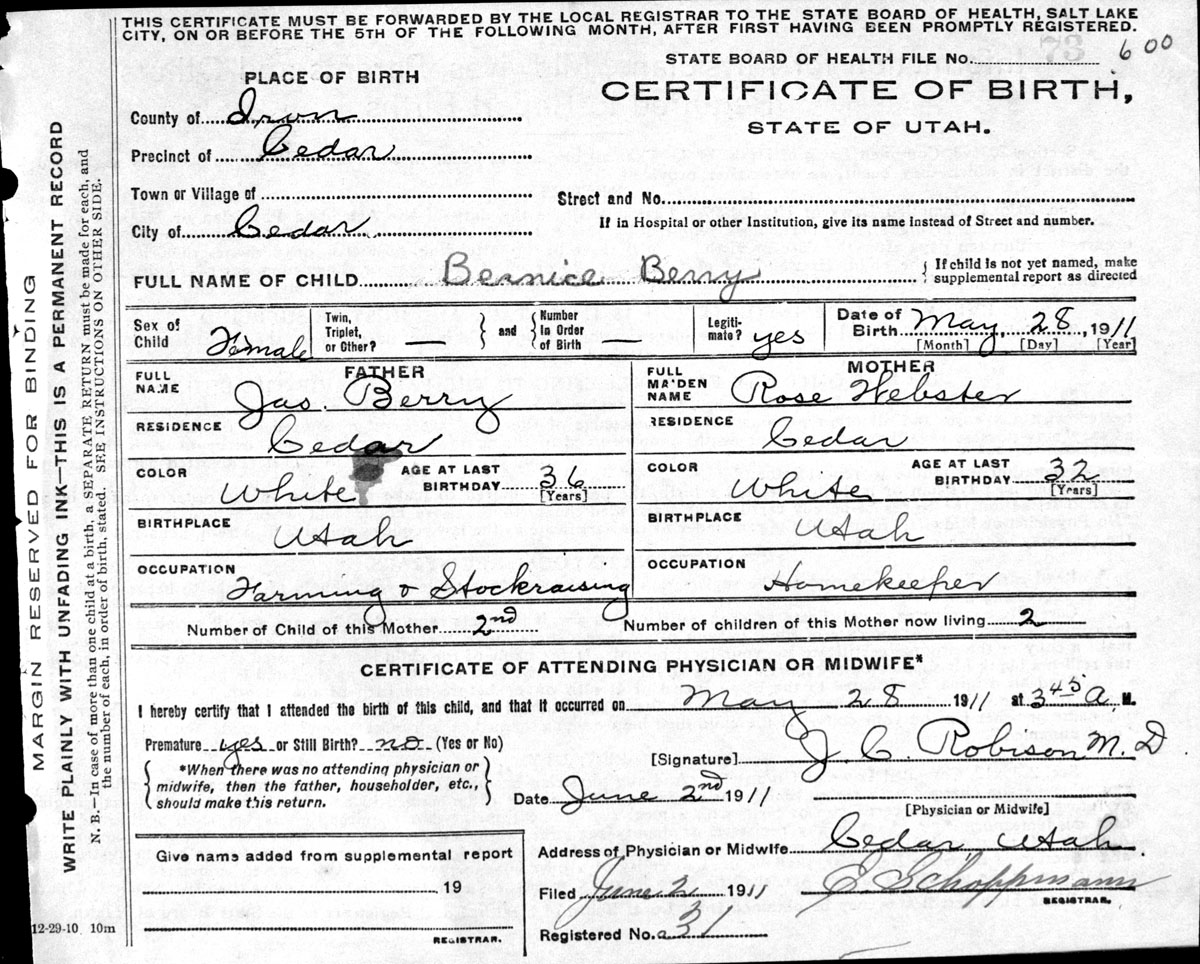 THIS CERTIFICATE MUST BE FORWARDED BY THE LOCAL REGISTRAR TO THE STATE BOARD OF HEALTH, SALT LAKE
CITY, ON OR BEFORE THE 5TH OF THE FOLLOWING MONTH, AFTER FIRST HAVING BEEN PROMPTLY REGISTERED.
STATE BOARD OF HEALTH FILE No. 600
PLACE OF BIRTH
CERTIFICATE OF BIRTH,
STATE OF UTAH.
County of Iron
Precinct of Cedar
Town or Village of
Street and No.
City of Cedar
If in Hospital or other Institution, give its name instead of Street and number.
FULL NAME OF CHILD Bernice Berry { If child is not yet named, make supplemental report as directed
Sex of Child Female Twin, Triplet, or Other? — } and { Number in Order of Birth — Legitimate? yes Date of Birth May 28, 1911
[Month] [Day] [Year]
FATHER MOTHER
FULL NAME Jas. Berry FULL MAIDEN NAME Rose Webster
RESIDENCE Cedar RESIDENCE Cedar
COLOR White AGE AT LAST BIRTHDAY 36 [Years] COLOR White AGE AT LAST BIRTHDAY 32 [Years]
BIRTHPLACE Utah BIRTHPLACE Utah
OCCUPATION Farming & Stockraising OCCUPATION Homekeeper
Number of Child of this Mother 2nd Number of children of this Mother now living 2
CERTIFICATE OF ATTENDING PHYSICIAN OR MIDWIFE*
I hereby certify that I attended the birth of this child, and that it occurred on May 28 1911 at 3 45 a, M.
Premature yes or Still Birth? no (Yes or No)
[Signature] J. C. Robison M. D
{ *When there was no attending physician or
midwife, then the father, householder, etc.,
should make this return. }
Date June 2nd 1911
[Physician or Midwife]
Give name added from supplemental report
19
REGISTRAR.
Address of Physician or Midwife Cedar, Utah.
Filed June 2 1911 E. Schoppmann
REGISTRAR.
Registered No. 31
12-29-10 10m
MARGIN RESERVED FOR BINDING
WRITE PLAINLY WITH UNFADING INK—THIS IS A PERMANENT RECORD
N. B.—In case of more than one child at a birth, a SEPARATE RETURN, must be made for each, and
the number of each, in order of birth, stated. SEE INSTRUCTIONS ON OTHER SIDE.